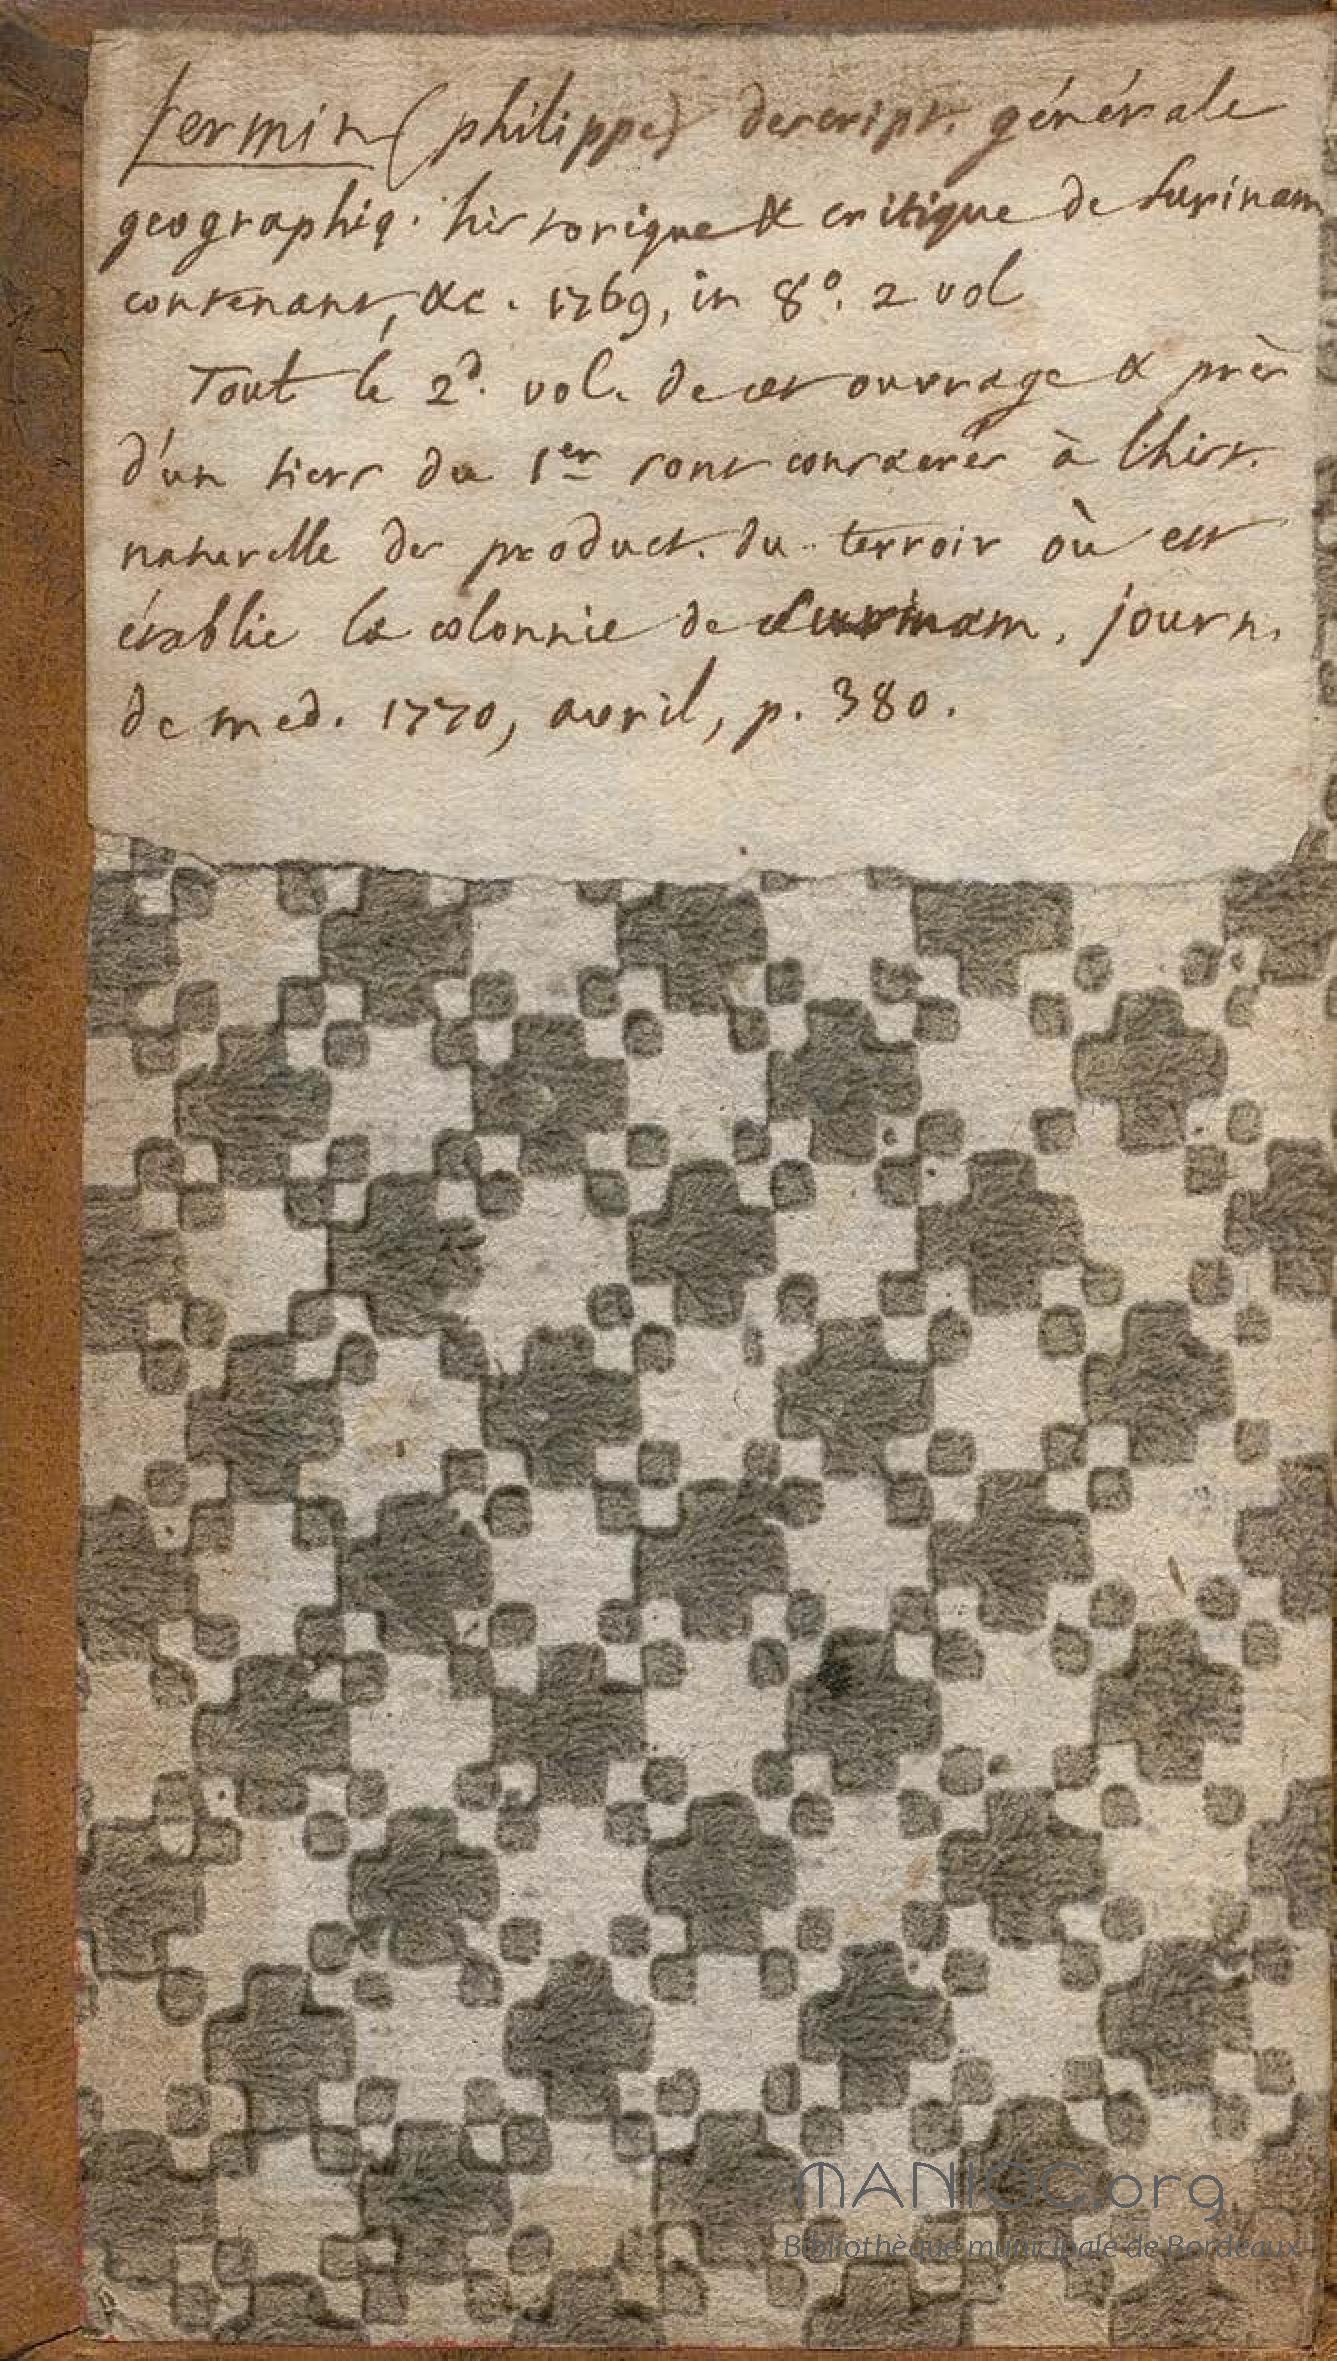 fermin (philippe) descript. générale
geographiq. historique & critique de Surinam
contenant, &c. 1769, in 8º. 2 vol
Tout le 2d. vol. de cet ouvrage & près
d'un tiers du 1er sont consacrés à l'hist.
naturelle des product. du terroir où est
établie la colonnie de Surinam. journ.
de med. 1770, avril, p. 380.
MANIOC.org
Bibliothèque municipale de Bordeaux